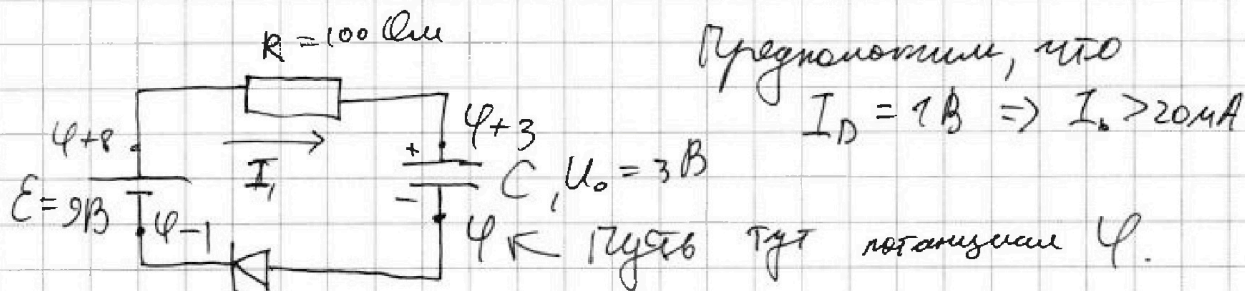 R = 100 Ом
Предположим, что
I_D = 1В => I_0 > 20мА
φ+8
φ+3
I_1
+
ε = 9В
C, U_0 = 3В
-
φ-1
φ ← Пусть тут потанциал φ.